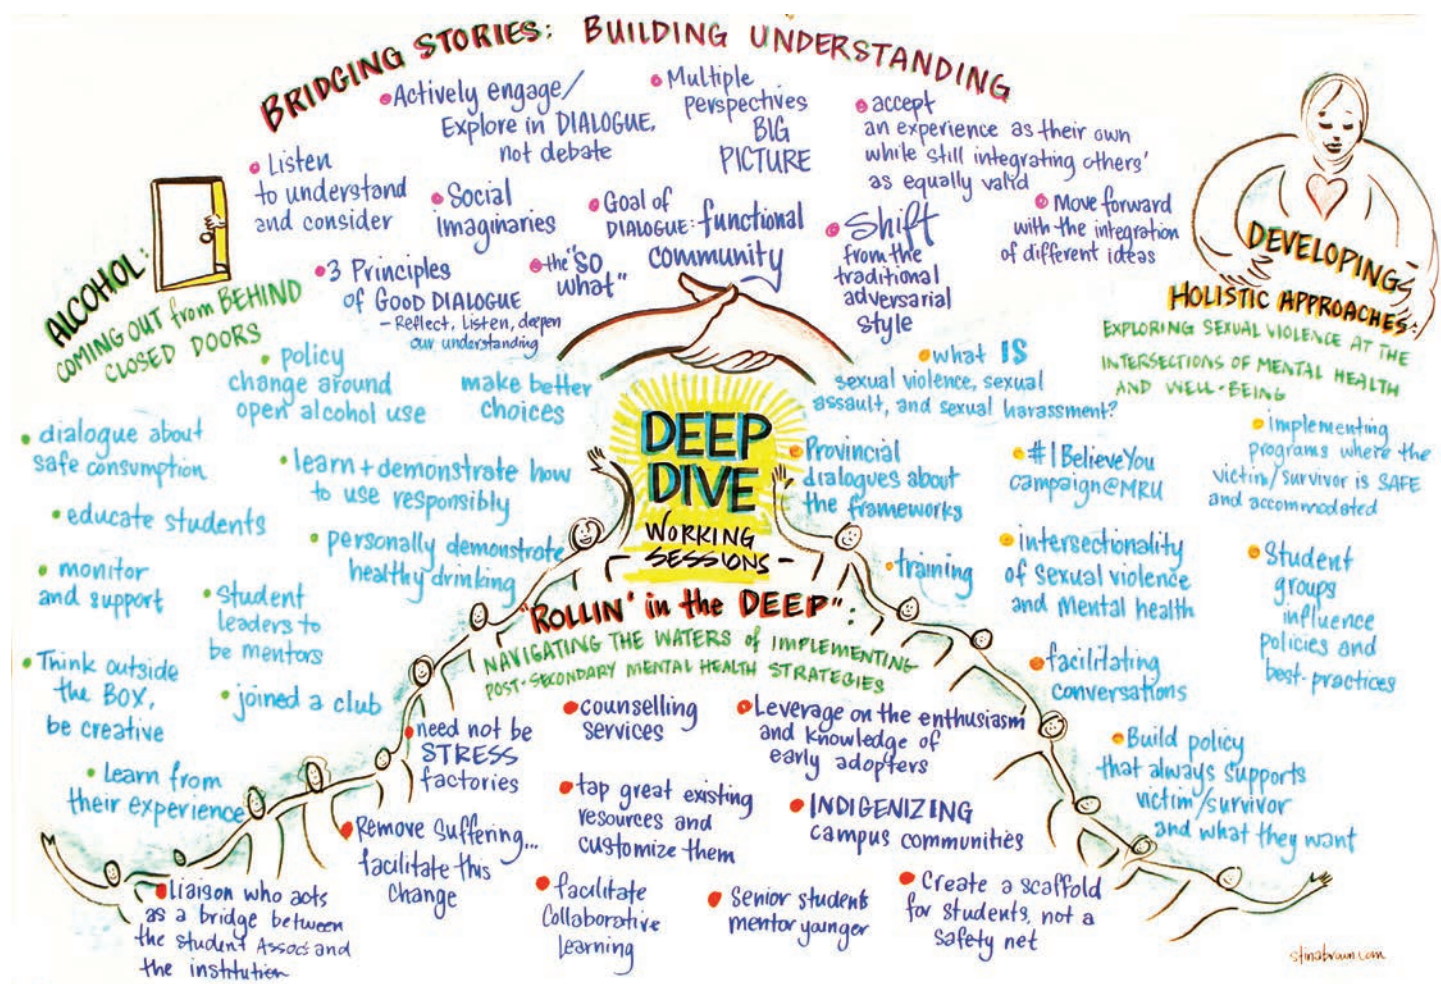 BRIDGING STORIES: BUILDING UNDERSTANDING
Actively engage/
Explore in DIALOGUE,
not debate
Multiple
perspectives
BIG
PICTURE
accept
an experience as their own
while still integrating others'
as equally valid
Listen
to understand
and consider
Social
imaginaries
Goal of
DIALOGUE: functional
community
Shift
from the
traditional
adversarial
style
Move forward
with the integration
of different ideas
3 Principles
of GOOD DIALOGUE
- Reflect, Listen, deepen
our understanding
the "SO
what"
ALCOHOL:
COMING OUT from BEHIND
CLOSED DOORS
policy
change around
open alcohol use
make better
choices
dialogue about
safe consumption
learn + demonstrate how
to use responsibly
educate students
personally demonstrate
healthy drinking
monitor
and support
Student
leaders to
be mentors
Think outside
the BOX,
be creative
joined a club
Learn from
their experience
DEEP
DIVE
WORKING
- SESSIONS -
DEVELOPING
HOLISTIC APPROACHES:
EXPLORING SEXUAL VIOLENCE AT THE
INTERSECTIONS OF MENTAL HEALTH
AND WELL-BEING
what IS
sexual violence, sexual
assault, and sexual harassment?
Provincial
dialogues about
the frameworks
#IBelieveYou
campaign@MRU
implementing
programs where the
victim/survivor is SAFE
and accommodated
training
intersectionality
of sexual violence
and mental health
Student
groups
influence
policies and
best-practices
facilitating
conversations
Build policy
that always supports
victim/survivor
and what they want
"ROLLIN' in the DEEP":
NAVIGATING THE WATERS of IMPLEMENTING
POST-SECONDARY MENTAL HEALTH STRATEGIES
need not be
STRESS
factories
counselling
services
Leverage on the enthusiasm
and knowledge of
early adopters
tap great existing
resources and
customize them
INDIGENIZING
campus communities
Remove suffering...
facilitate this
change
Liaison who acts
as a bridge between
the student Assocs and
the institution
facilitate
Collaborative
Learning
Senior students
mentor younger
Create a scaffold
for students, not a
safety net
stinabrown.com